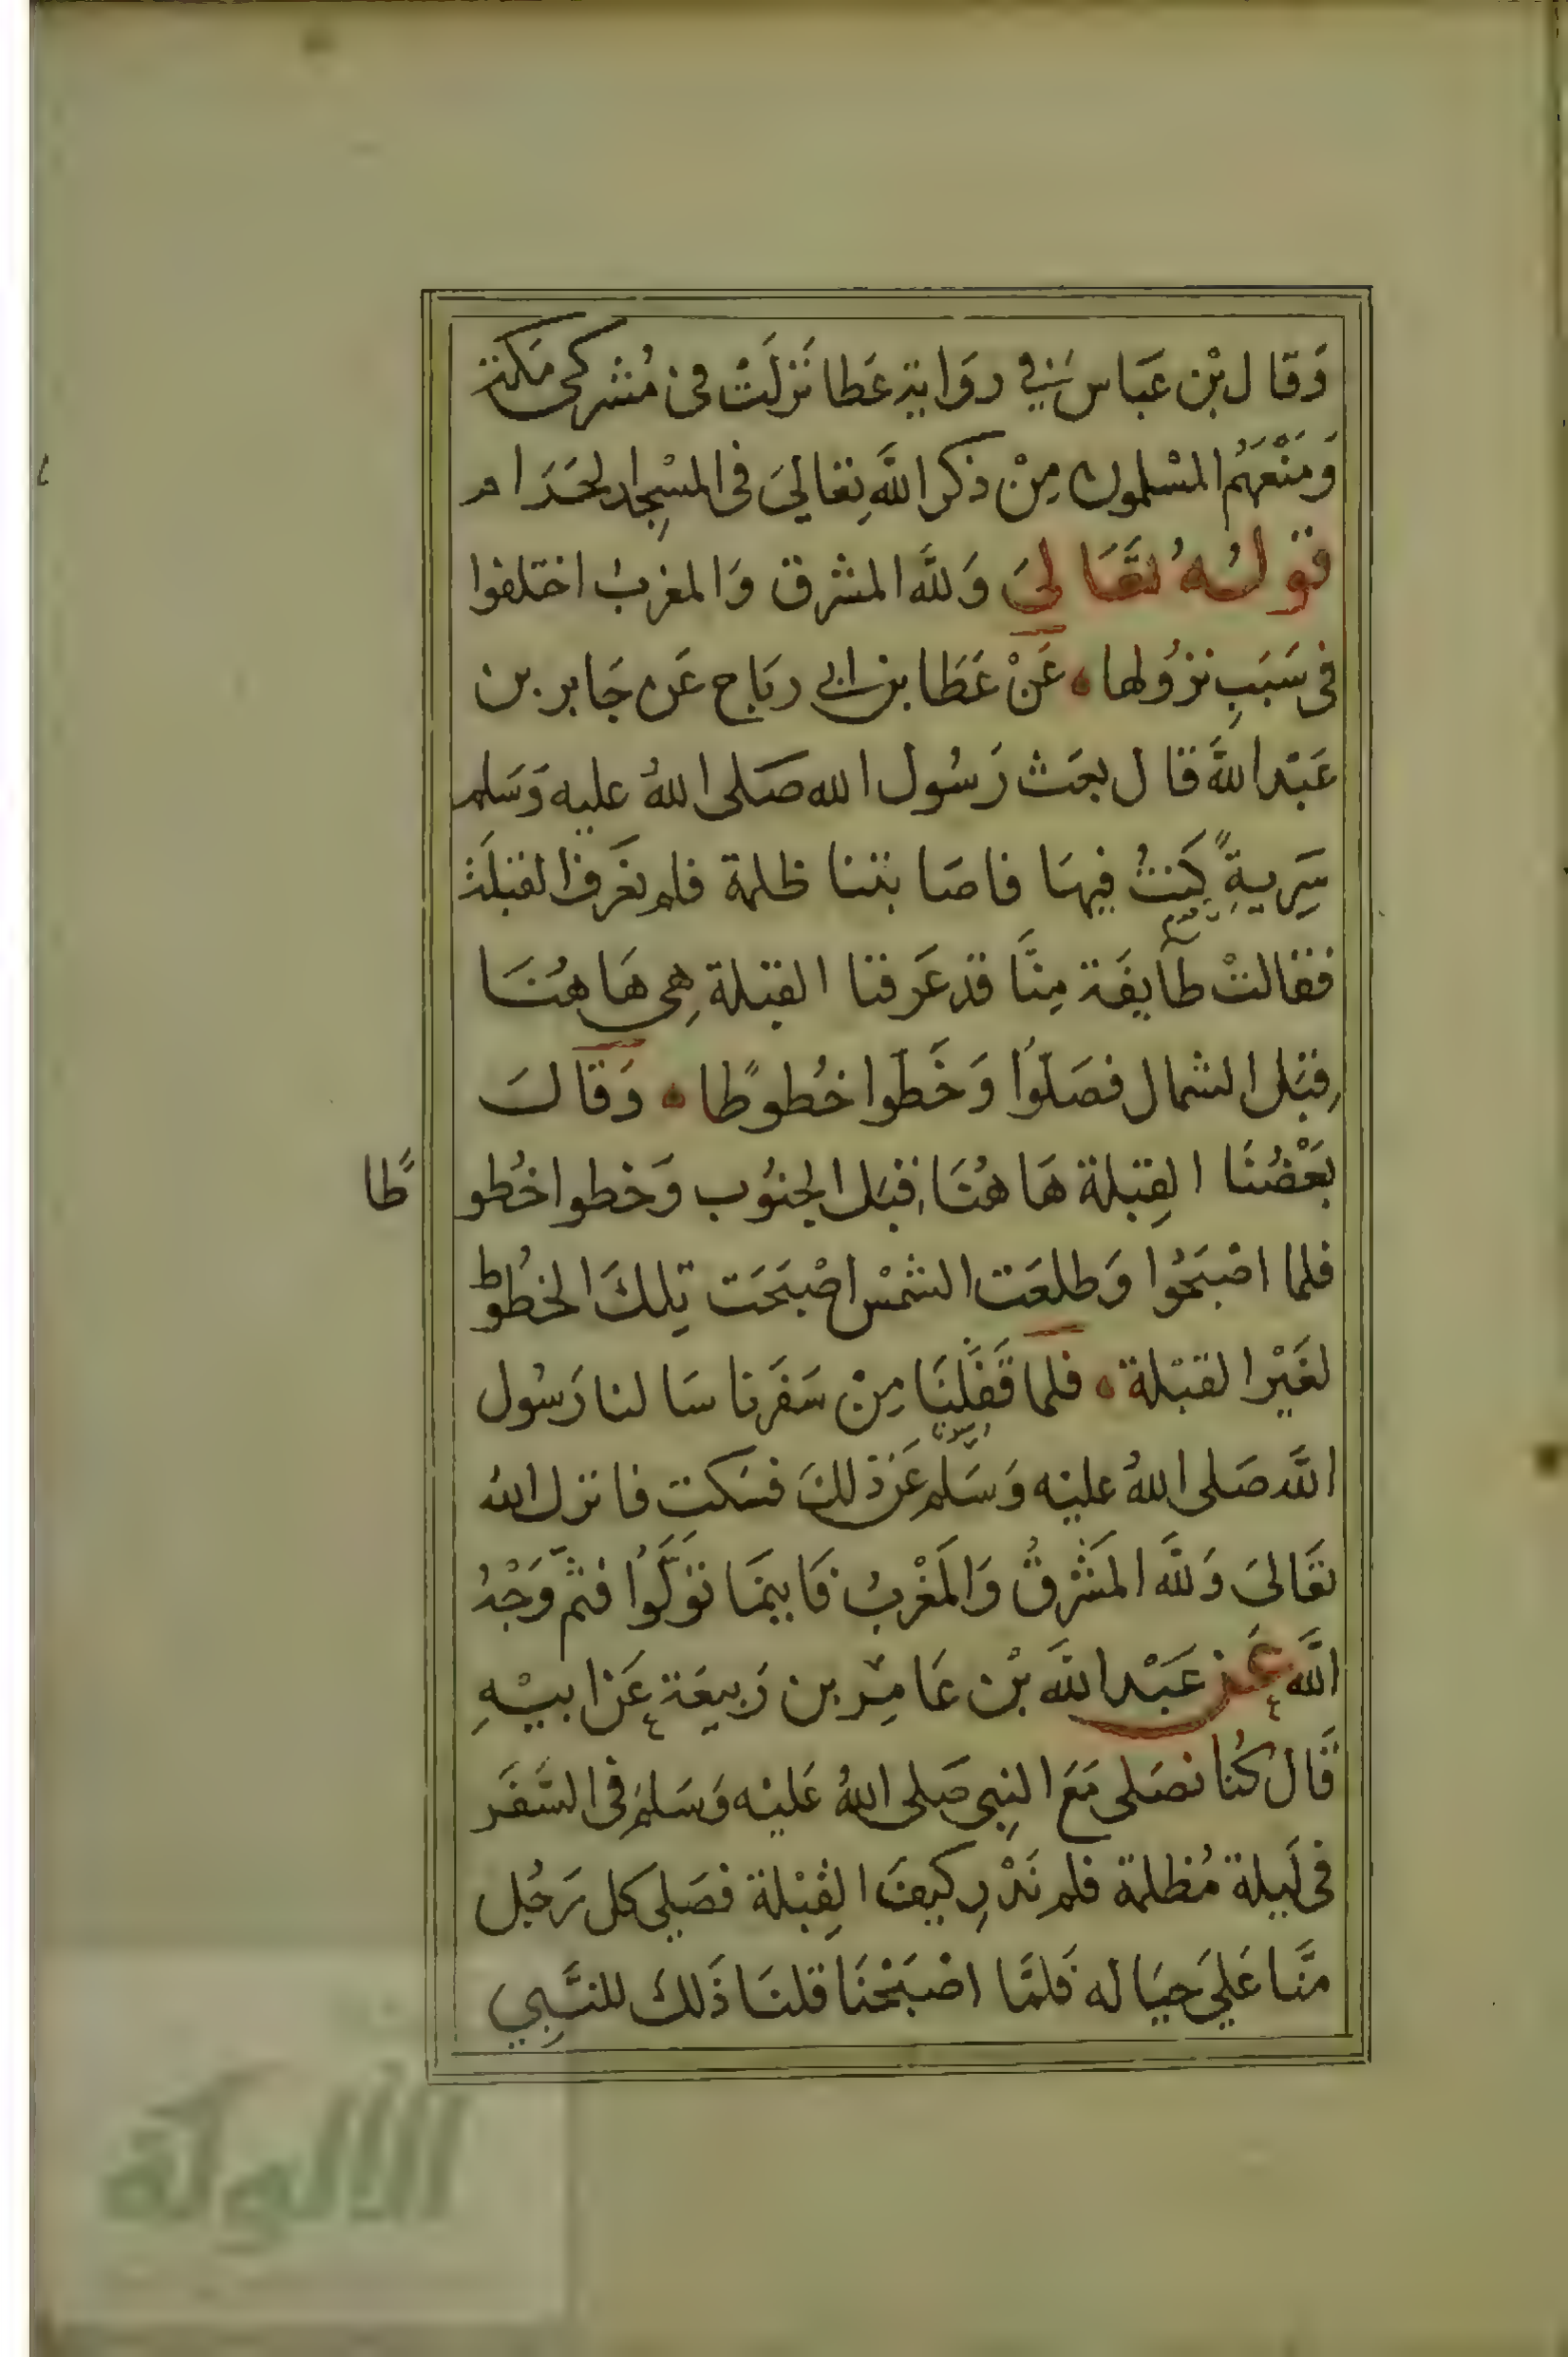 وَقال بْن عَبَاس في روَاية عَطا نَزلَتْ في مُشركي مَكة
وَمَنْعَهُم المسْلمون مِنْ ذكر اللَّه تعَاليَ في المسْجد الحَرَام
قولُهُ تَعَاليَ وَللَّه المشرق وَالمغربُ اختلفوا
في سَبَبِ نزوُلها عَنْ عَطَا بن ابي ربَاح عَن جَابر بن
عَبْد اللَّه قال بعَث رَسُول الله صَلى اللهُ عليه وَسَلم
سَرِيةً كنتُ فِيهَا فاصَابتنا ظلمة فلم نعَرف القبْلَة
فقالتْ طآيفَة مِنَّا قد عَرفنا القبْلة هِي هَاهُنَا
قِبَل الشمال فصَلّوُا وَخَطّوا خُطوطًا وَقالَ
بَعْضُنَا القِبْلة هَاهُنَا قِبَل الجنوُب وَخطوا خُطو
طًا
فلما اصْبَحُوا وَطلعَت الشمْس اصْبَحَت تِلكَ الخُطوُط
لغَيْر القبْلة فلما قَفَلْنَا مِنْ سَفَرنا سَالنا رَسُول
اللَّه صَلى اللهُ عليْه وَسَلَّم عَن ذلكَ فسَكت فانزل الله
تعَاليَ وَللَّه المَشْرقُ وَالمَغْربُ فَاينمَا توَلَّوُا فثمّ وَجْهُ
اللَّه عَن عَبْد اللَّه بْن عَامِر بن رَبيعَة عَن ابيْهِ
قَال كُنا نصَلى مَعَ النِبي صَلى اللهُ عَليْه وَسَلمَ في السَّفَر
في لَيلة مُظلمة فلم نَدْرِ كيفَ القِبْلة فصَلي كل رَجُل
مَّنا عَليَ حيَاله فَلمَّا اصْبَحْنَا قلنَا ذَلكَ للنَّبِي
الألوكة